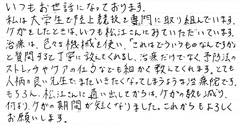 いつもお世話になっております。
私は大学生で陸上競技を専門に取り組んでいます。
ケガをしたときは、いつも松江さんにみていただいています。
治療は、色々な機械を使い、"これはどういうものなんですか"
と質問すると丁寧に教えてくれるし、治療だけでなく予防法の
ストレッチやケアの仕方なども細かく教えてくれます。とても
人柄の良い先生でまたいきたくなってしまうような治療院です。
もちろん、松江さんに通い出してからは、ケガの数も減り、
何より、ケガの期間が短くなりました。これからもよろしく
お願いします。